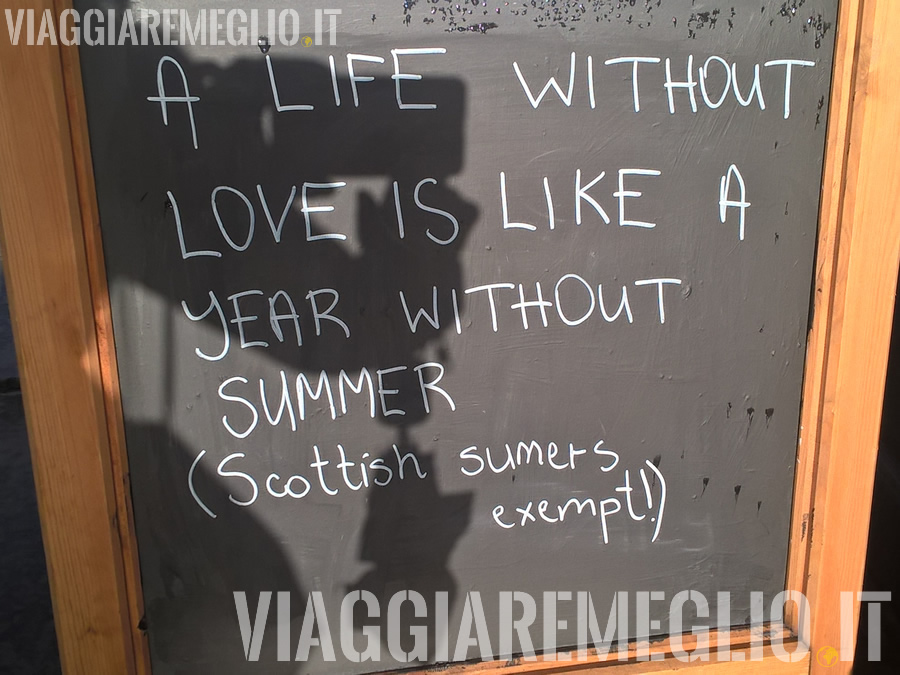 VIAGGIAREMEGLIO.IT
A LIFE WITHOUT
LOVE IS LIKE A
YEAR WITHOUT
SUMMER
(Scottish sumers
exempt!)
VIAGGIAREMEGLIO.IT